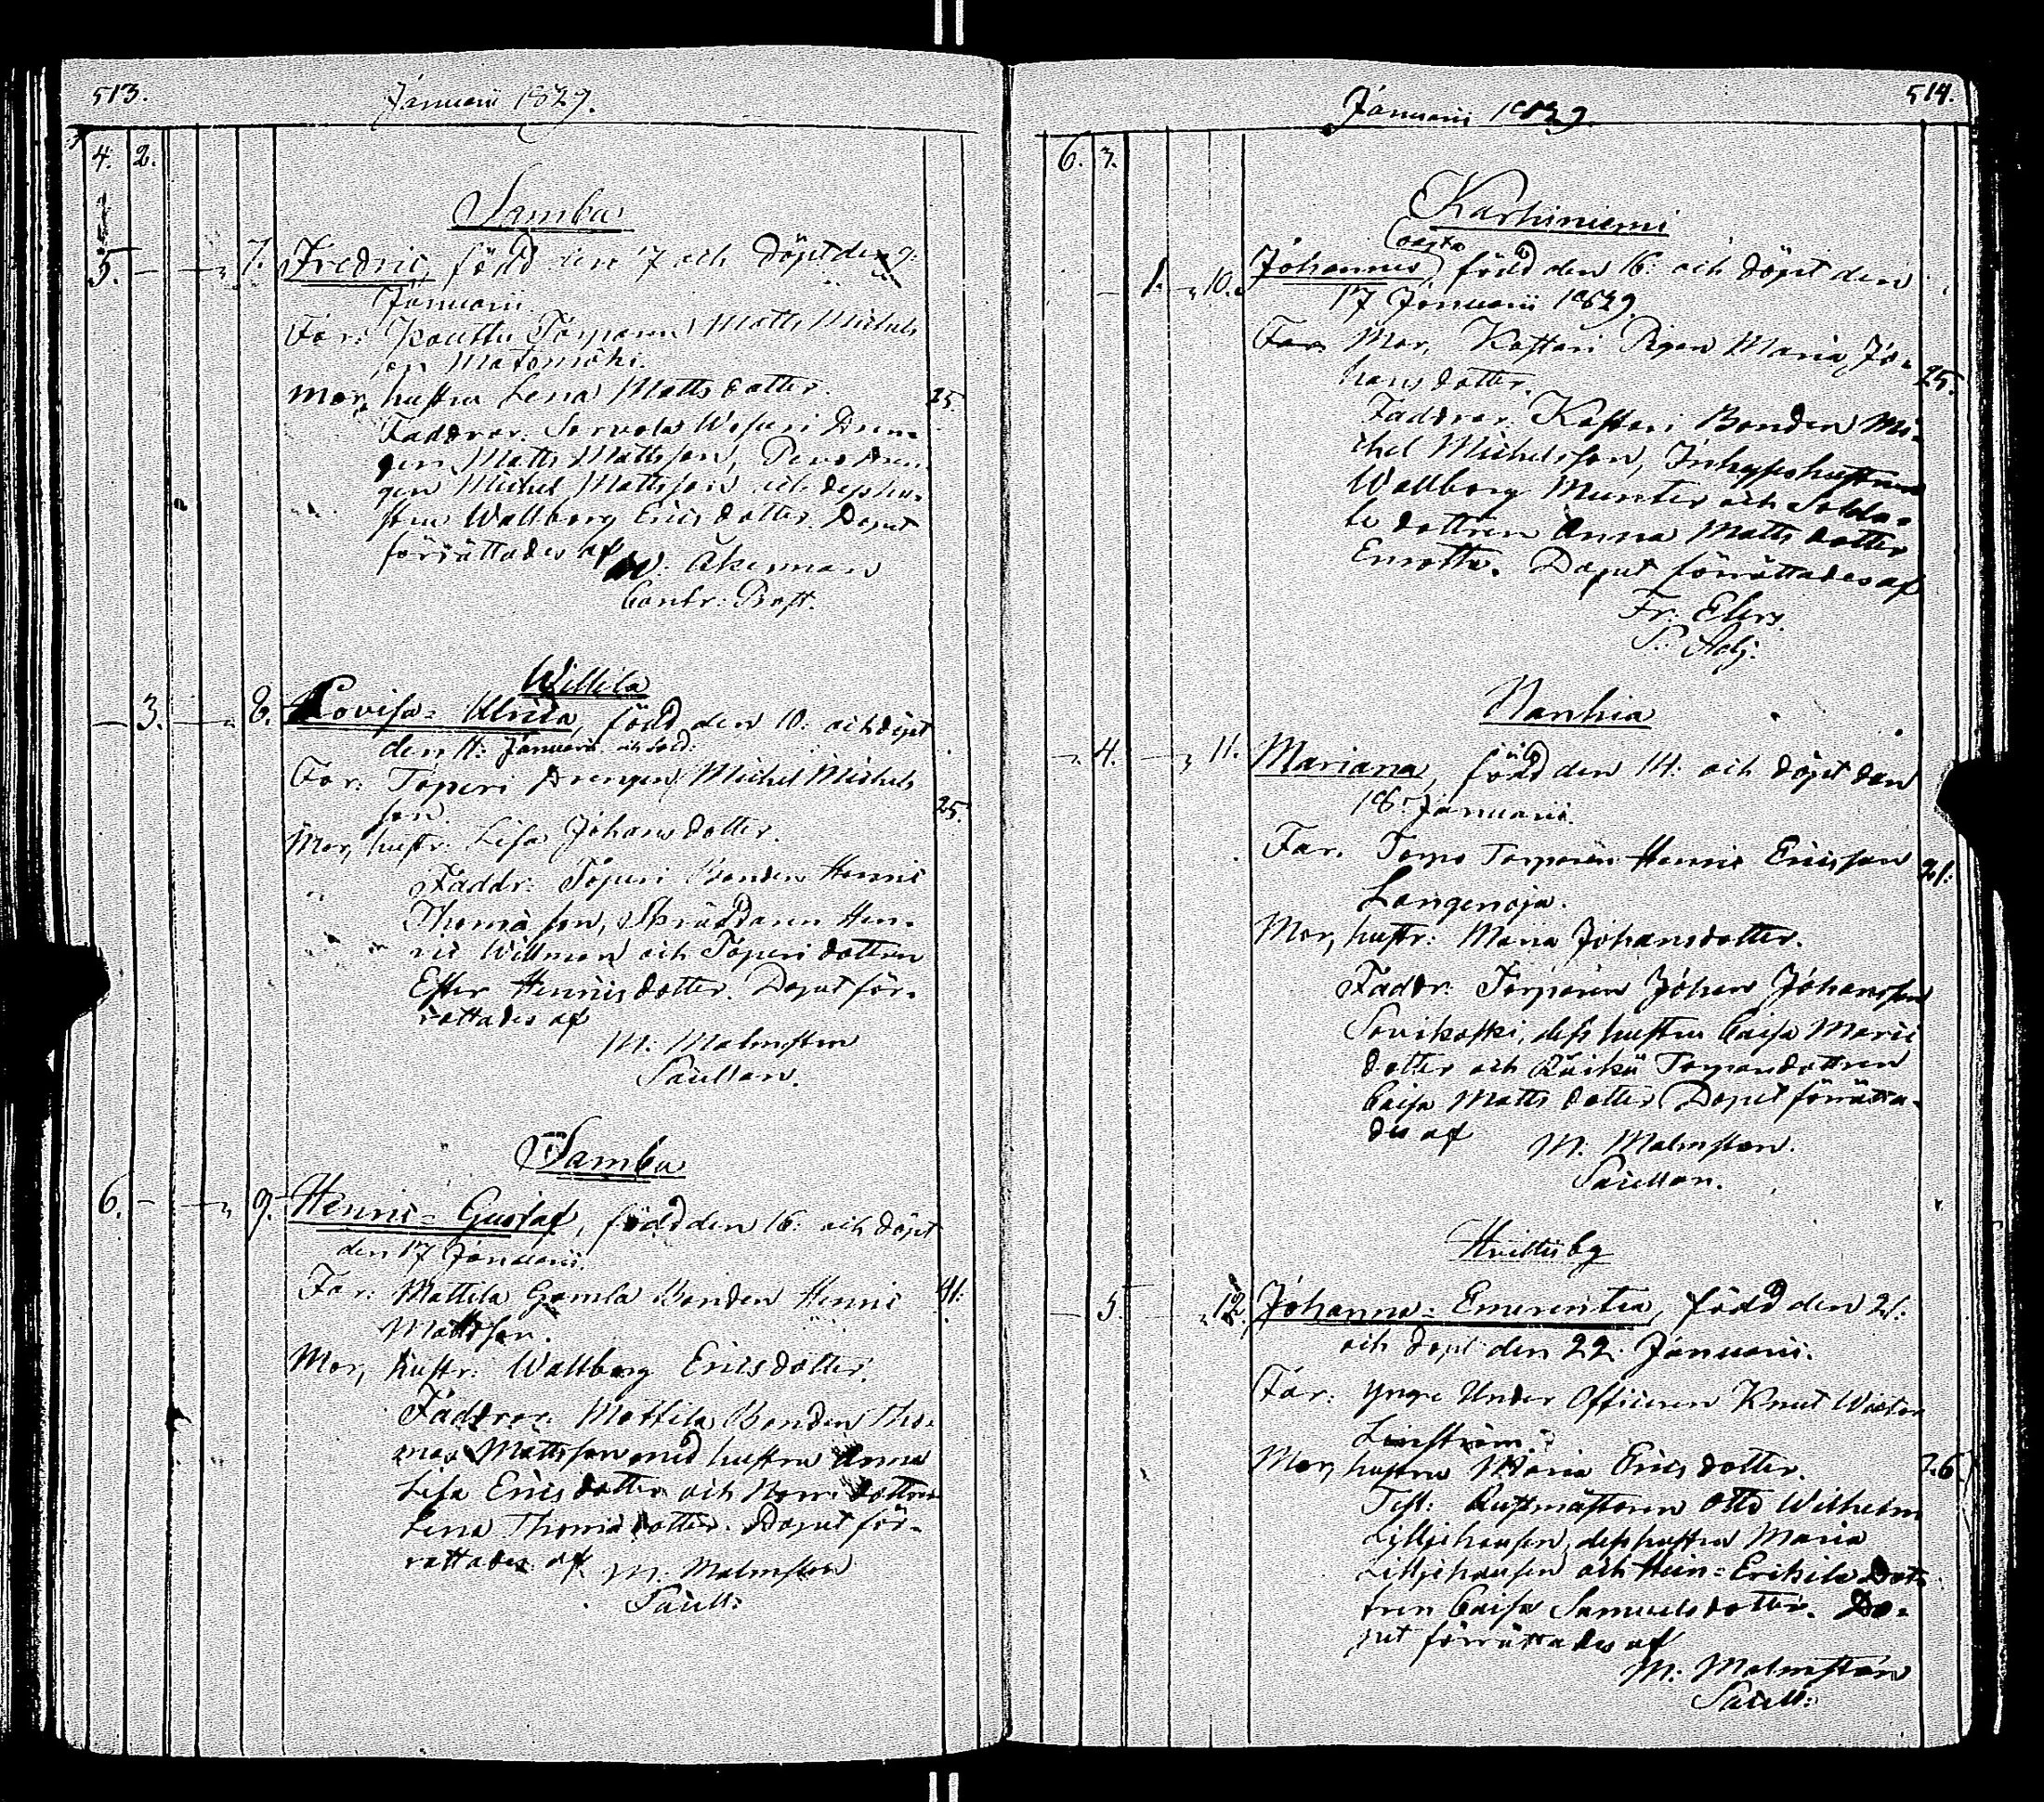 513.
Januarii 1829.
4. 2.
Samba
5. 7. Fredric, född den 7 och döpt den 9:
Januarii.
Far: Kouttu Torparen Matts Michels
son Matomäki.
Mor, hustru Lena Matts dotter. 25.
Faddrar: Sorvola Wesuri Dren-
gen Matts Mattsson, Dren-
gen Michel Mattsson och dess hu-
stru Wallborg Erics dotter. Doput
förrättades af
Åkerman
Contr: Prost.
Willila
3. 8. Lovisa = Ulrica, född den 10. och döpt
den 11. Januarii
Far: Toperi Drengen Michel Michels
son. 25.
Mor, hustr: Lisa Johans dotter.
Faddr: Toperi Bonden Henric
Thomasson, Skräddaren Hen-
ric Willman och Toperi dottren
Ester Henricsdotter. Doput för-
rättades af
M: Malmsten
Sacellan.
Samba
6. 9. Henric = Gustaf, född den 16: och döpt
den 17 Januarii.
Far: Mattila Gamla Bonden Henric 41.
Mattsson.
Mor, hustr: Wallborg Erics dotter.
Faddrar: Mattila Bonden Tho-
mas Mattsson med hustru Anna
Lisa Erics dotter och dottren
Lena Thomædotter. Doput för-
rättades af M. Malmsten
Sacell:
514.
Januarii 1829.
6. 3.
Karhiniemi
oägta
1. 10. Johannes, född den 16: och döpt den
17 Januarii 1829.
Far. Mor, Kostari Pigan Maria Jo-
hans dotter. 25.
Faddrar: Kostari Bonden Mi-
chel Michelsson, Inhyseshustrun
Wallborg Munter och Solda-
te dottren Anna Matts dotter
Enrotte. Doput förrättades af
Fr: Elers.
P. Adj.
Nanhia
4. 11. Mariana, född den 14: och döpt den
18 Januarii.
Far. Torpo Torparen Henric Ericsson 21.
Langenoja.
Mor, hustr: Maria Johansdotter.
Faddr: Torparen Johan Johansson
Sovikoski, dess hustru Caisa Marii
dotter och Räikü Torparedottren
Caisa Matts dotter. Doput förrätta-
des af M. Malmsten.
Sacellan.
Hvittisby
5 12. Johanna = Emerentia, född den 21.
och döpt den 22. Januarii.
Far: Yngre Under Officeren Knut Wictor
Linström.
Mor, hustru Maria Erics dotter. 26
Test: Rustmästaren Otto Wilhelm
Lilljehausen, dess hustru Maria
Lilljehausen och Hein = Erikila Dot-
tren Caisa Samuelsdotter. Do-
put förrättades af
M: Malmsten
Sacell: